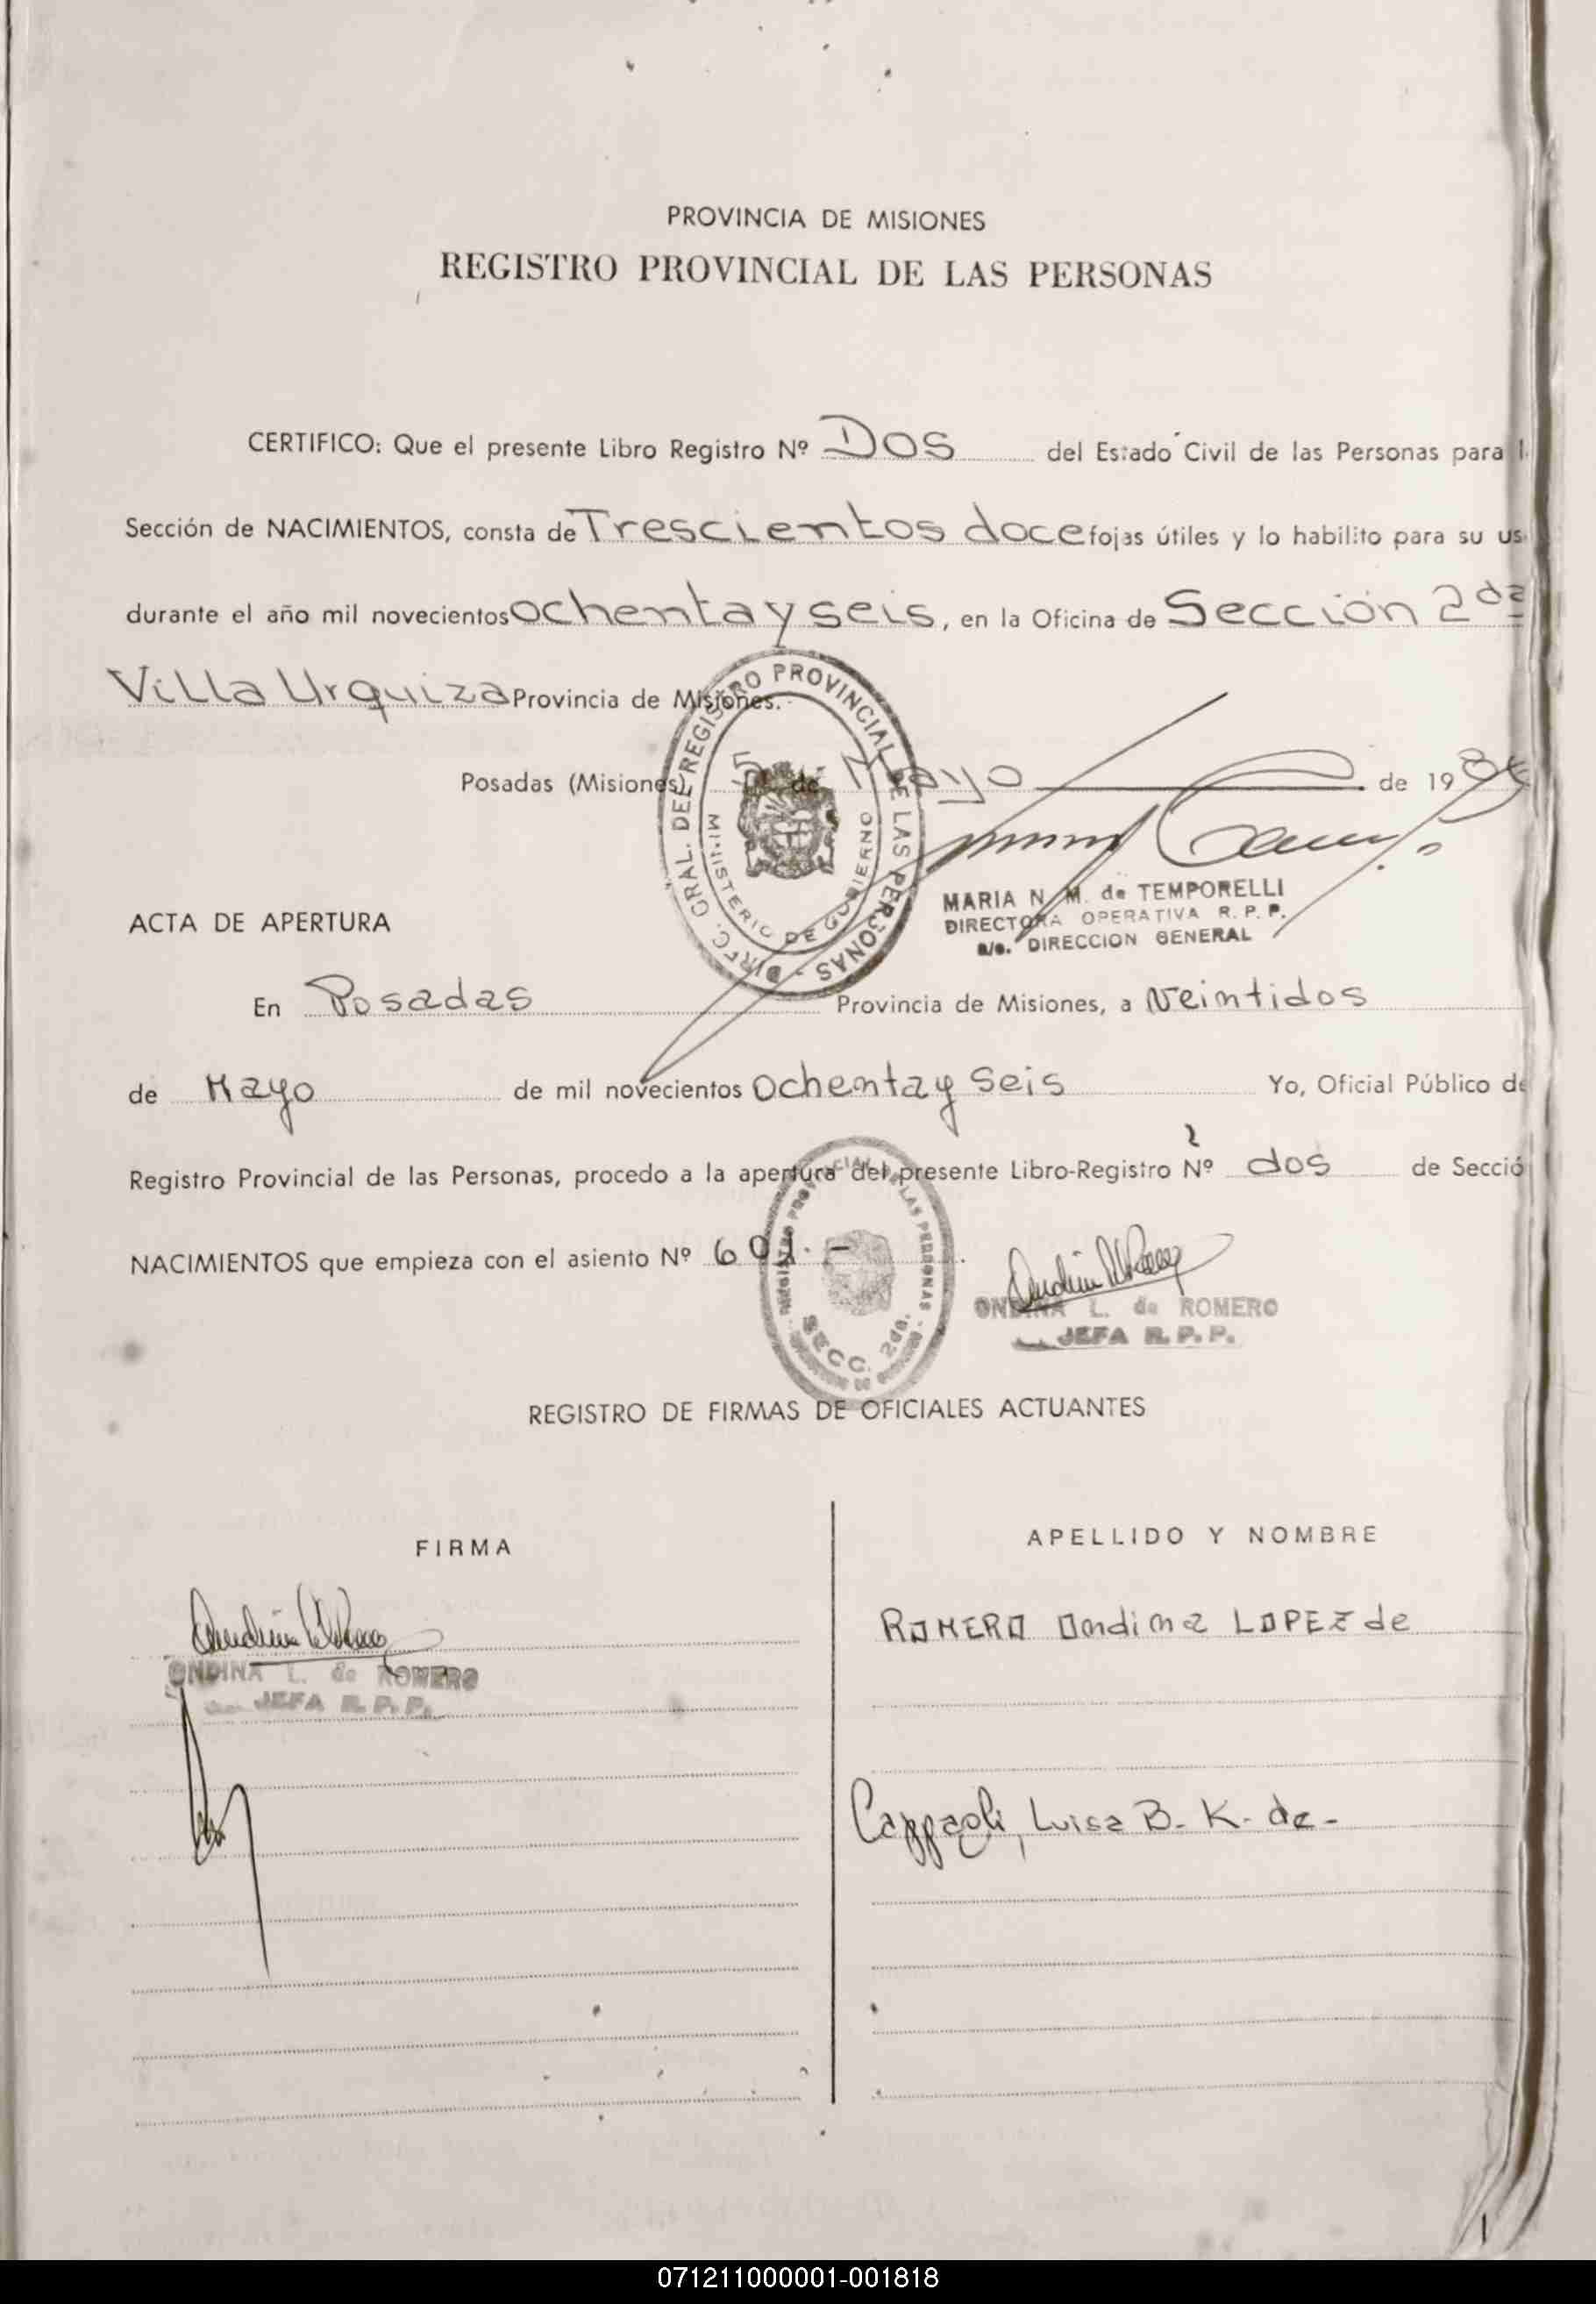 PROVINCIA DE MISIONES
REGISTRO PROVINCIAL DE LAS PERSONAS
CERTIFICO: Que el presente Libro Registro Nº Dos del Estado Civil de las Personas para l
Sección de NACIMIENTOS, consta de Trescientos doce fojas útiles y lo habilito para su us
durante el año mil novecientos ochenta y seis, en la Oficina de Sección 2da
Villa Urquiza Provincia de Misiones.
DIREC. GRAL. DEL REGISTRO PROVINCIAL DE LAS PERSONAS -
MINISTERIO DE GOBIERNO
Posadas (Misiones), 5 de Mayo de 1986
MARIA N. M. de TEMPORELLI
DIRECTORA OPERATIVA R. P. P.
a/c. DIRECCION GENERAL
ACTA DE APERTURA
En Posadas Provincia de Misiones, a Veintidos
de Mayo de mil novecientos ochenta y seis Yo, Oficial Público de
Registro Provincial de las Personas, procedo a la apertura del presente Libro-Registro Nº 2 dos de Secció
NACIMIENTOS que empieza con el asiento Nº 601.-
REGISTRO PROVINCIAL DE LAS PERSONAS
SECC. 2da.
ONDINA L. de ROMERO
JEFA R. P. P.
REGISTRO DE FIRMAS DE OFICIALES ACTUANTES
FIRMA
APELLIDO Y NOMBRE
ROMERO Ondina LOPEZ de
ONDINA L. de ROMERO
JEFA R. P. P.
Cappaoli, Luisa B. K. de-
1
071211000001-001818